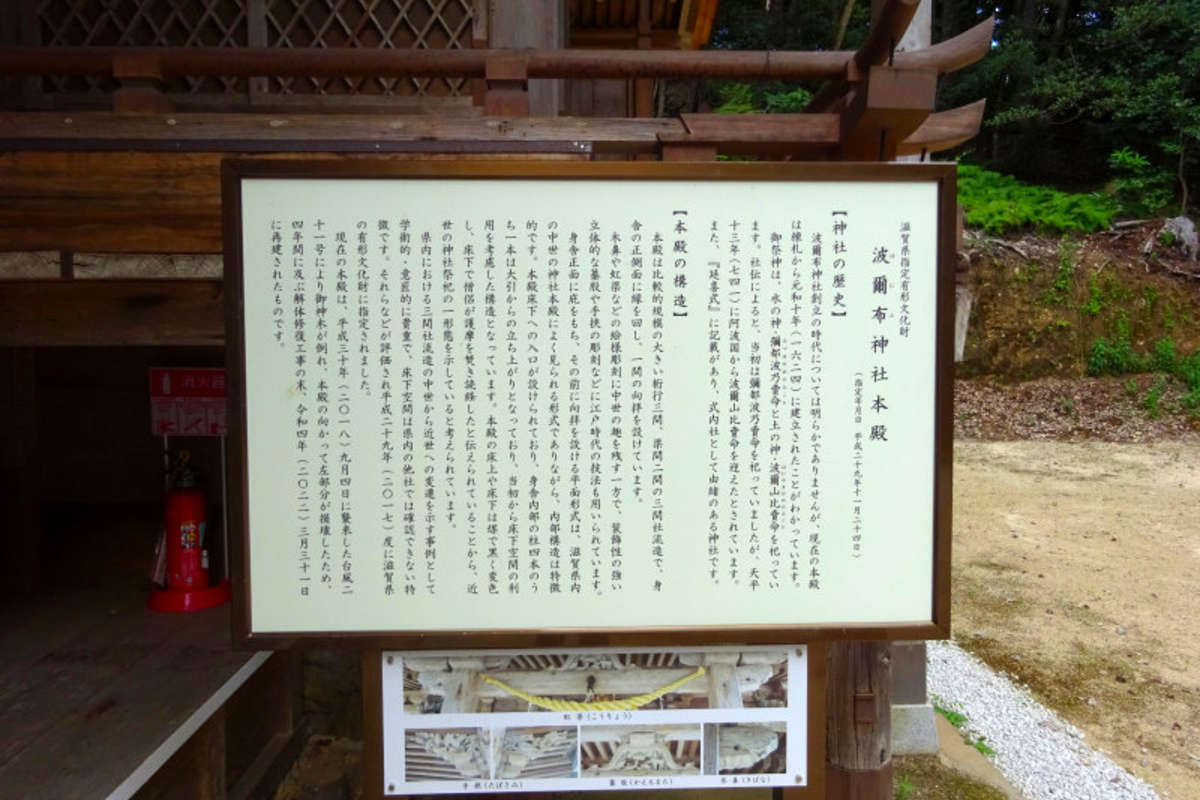 滋賀県指定有形文化財
波爾布神社本殿
はにふ
(指定年月日 平成二十九年十一月二十四日)
【神社の歴史】
波爾布神社創立の時代については明らかでありませんが、現在の本殿
は棟札から元和十年(一六二四)に建立されたことがわかっています。
御祭神は、水の神・彌都波乃賣命と土の神・波爾山比賣命を祀ってい
ます。社伝によると、当初は彌都波乃賣命を祀っていましたが、天平
十三年(七四一)に阿波国から波爾山比賣命を迎えたとされています。
また、『延喜式』に記載があり、式内社として由緒のある神社です。
【本殿の構造】
本殿は比較的規模の大きい桁行三間、梁間二間の三間社流造で、身
舎の正側面に縁を回し、一間の向拝を設けています。
木鼻や虹梁などの絵様彫刻に中世の趣を残す一方で、装飾性の強い
立体的な蟇股や手挟の彫刻などに江戸時代の技法も用いられています。
身舎正面に庇をもち、その前に向拝を設ける平面形式は、滋賀県内
の中世の神社本殿によく見られる形式でありながら、内部構造は特徴
的です。本殿床下への入口が設けられており、身舎内部の柱四本のう
ち一本は大引からの立ち上がりとなっており、当初から床下空間の利
用を考慮した構造となっています。本殿の床上や床下は煤で黒く変色
し、床下で僧侶が護摩を焚き読経したと伝えられていることから、近
世の神社祭祀の一形態を示していると考えられています。
県内における三間社流造の中世から近世への変遷を示す事例として
学術的・意匠的に貴重で、床下空間は県内の他社では確認できない特
徴です。それらなどが評価され平成二十九年(二〇一七)度に滋賀県
の有形文化財に指定されました。
現在の本殿は、平成三十年(二〇一八)九月四日に襲来した台風二
十一号により御神木が倒れ、本殿の向かって左部分が損壊したため、
四年間に及ぶ解体修復工事の末、令和四年(二〇二二)三月三十一日
に再建されたものです。
消火器
虹梁(こうりょう)
手挟(たばさみ)
蟇股(かえるまた)
木鼻(きばな)